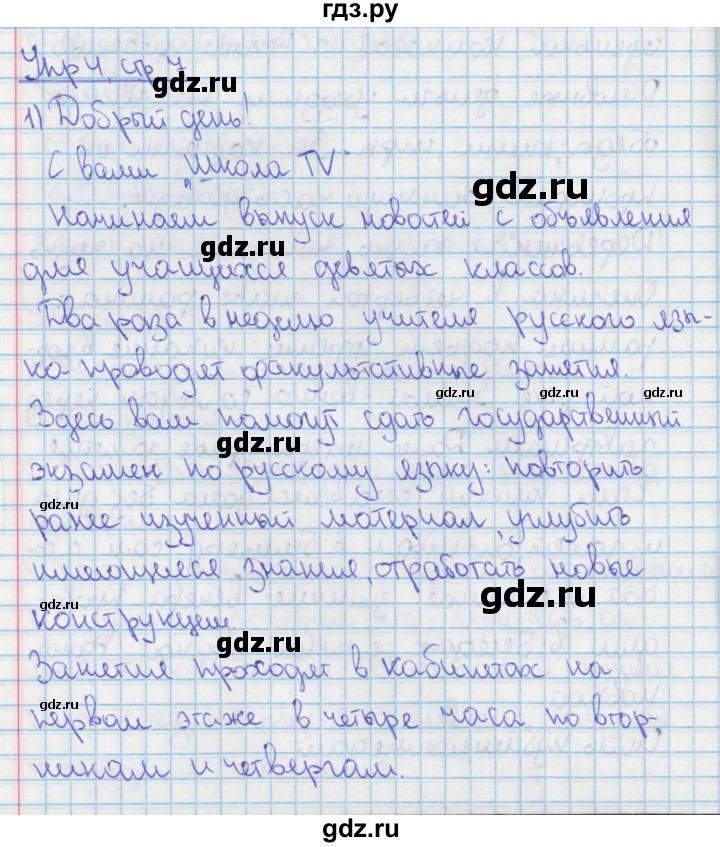 гдз.ру
Упр 4, стр 7
gdz.ru
1) Добрый день!
С вами „Школа TV"
gdz.ru
Начинаем выпуск новостей с объявления
gdz.ru
для учащихся девятых классов.
Два раза в неделю учителя русского язы-
gdz.ru
ка проводят факультативные занятия.
gdz.ru gdz.ru gdz.ru
Здесь вам помогут сдать государственный
gdz.ru
экзамен по русскому языку: повторить
gdz.ru
ранее изученный материал, углубить
имеющиеся знания, отработать новые
gdz.ru
gdz.ru
конструкции.
gdz.ru
Занятия проходят в кабинетах на
gdz.ru
первом этаже в четыре часа по втор-
gdz.ru
никам и четвергам.
gdz.ru
gdz.ru